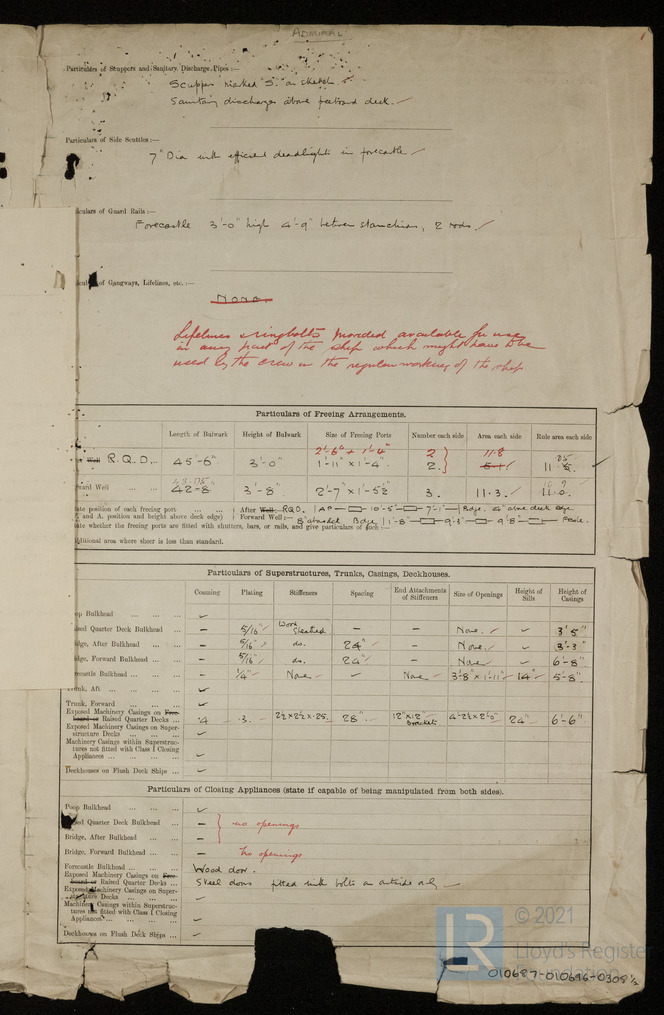 ADMIRAL
Particulars of Scuppers and Sanitary Discharge Pipes :—
Scupper marked "S." on sketch
Sanitary discharges above freeboard deck.
Particulars of Side Scuttles :—
7" Dia with efficient deadlights in forecastle
culars of Guard Rails :—
Forecastle 3'-0" high 4'-9" between stanchions, 2 rods.
of Gangways, Lifelines, etc. :—
None.
Lifelines & ringbolts provided available for use
in any part of the ship which might have to be
used by the crew in the regular working of the ship
Particulars of Freeing Arrangements.
Length of Bulwark Height of Bulwark Size of Freeing Ports Number each side Area each side Rule area each side
2'-6" x 1'-4" 2 11.8
Well R.Q.D. 45'-6" 3'-0" 1'-11" x 1'-4" 2.
ward Well 42'-8" 3'-8" 2'-7" x 1'-5½" 3. 11.3. 11.0.
ate position of each freeing port ... ... After Well: RQD. AP 10'-5" 7'-1" Bdge.
and position and height above deck edge) Forward Well :— Bdge 1'-8" 9'-3" 9'-8" Fcsle.
tate whether the freeing ports are fitted with shutters, bars, or rails, and give particulars of each :—
dditional area where sheer is less than standard.
Particulars of Superstructures, Trunks, Casings, Deckhouses.
Coaming Plating Stiffeners Spacing End Attachments of Stiffeners Size of Openings Height of Sills Height of Casings
op Bulkhead ... ... ...
ised Quarter Deck Bulkhead ... — 5/16" Wood Sheathed — — None. 3'-5"
idge, After Bulkhead ... ... — 5/16" do. 24" — None. 3'-3"
dge, Forward Bulkhead ... ... — 5/16" do. 24" — None 6'-8"
ecastle Bulkhead ... ... — ¼" None None 3'-8" x 1'-11" 14" 5'-8"
runk, Aft ... ... ...
Trunk, Forward ... ... ...
Exposed Machinery Casings on Free-
board or Raised Quarter Decks ... .4 .3. 2½ x 2½ x .25 28" 12" x 12" Bracket 24" 6'-6"
Exposed Machinery Casings on Super-
structure Decks ... ...
Machinery Casings within Superstruc-
tures not fitted with Class I Closing
Appliances ... ... ...
Deckhouses on Flush Deck Ships ...
Particulars of Closing Appliances (state if capable of being manipulated from both sides).
Poop Bulkhead ... ... ...
ised Quarter Deck Bulkhead ... —
no openings
Bridge, After Bulkhead ... ... —
Bridge, Forward Bulkhead ... ... — No openings
Forecastle Bulkhead ... ... Wood door.
Exposed Machinery Casings on Free-
board or Raised Quarter Decks ... Steel doors fitted with bolts on outside only
Exposed Machinery Casings on Super-
structure Decks ... ...
Machinery Casings within Superstruc-
tures not fitted with Class I Closing
Appliances ... ...
Deckhouses on Flush Deck Ships ...
LR
© 2021
Lloyd's Register
Foundation
010687-010696-0308½